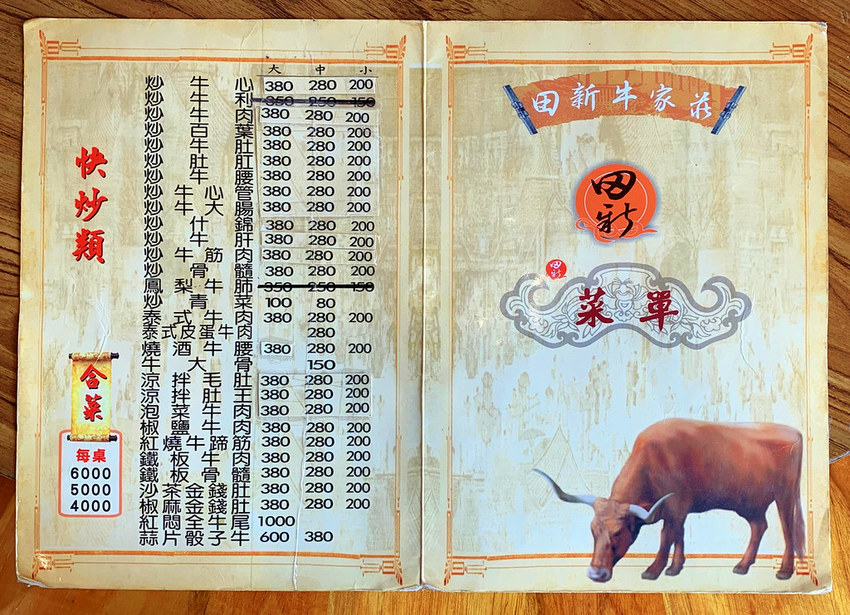 快炒類
大 中 小
炒牛心 380 280 200
炒牛利 350 250 150
炒牛肉 380 280 200
炒百葉 380 280 200
炒牛肚 380 280 200
炒肚肛 380 280 200
炒牛腰 380 280 200
炒牛心管 380 280 200
炒牛大腸 380 280 200
炒什錦 380 280 200
炒牛肝 380 280 200
炒牛筋肉 380 280 200
炒骨髓 380 280 200
鳳梨牛肺 350 250 150
炒青菜 100 80
泰式牛肉 380 280 200
泰式皮蛋牛肉 280
燒酒牛腰 380 280 200
牛大骨 150
涼拌毛肚 380 280 200
涼拌肚王 380 280 200
泡菜牛肉 380 280 200
椒鹽牛肉 380 280 200
紅燒牛蹄筋 380 280 200
鐵板牛肉 380 280 200
鐵板骨髓 380 280 200
沙茶金錢肚 380 280 200
椒麻金錢肚 380 280 200
紅悶全牛尾 1000
蒜片骰子牛 600 380
合菜
每桌
6000
5000
4000
田新牛家莊
田新
田新
菜單